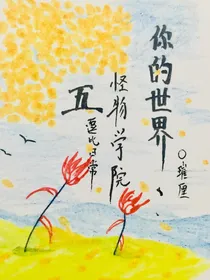 你的世界
怪物学院
五
逗比日常
〇璀厘